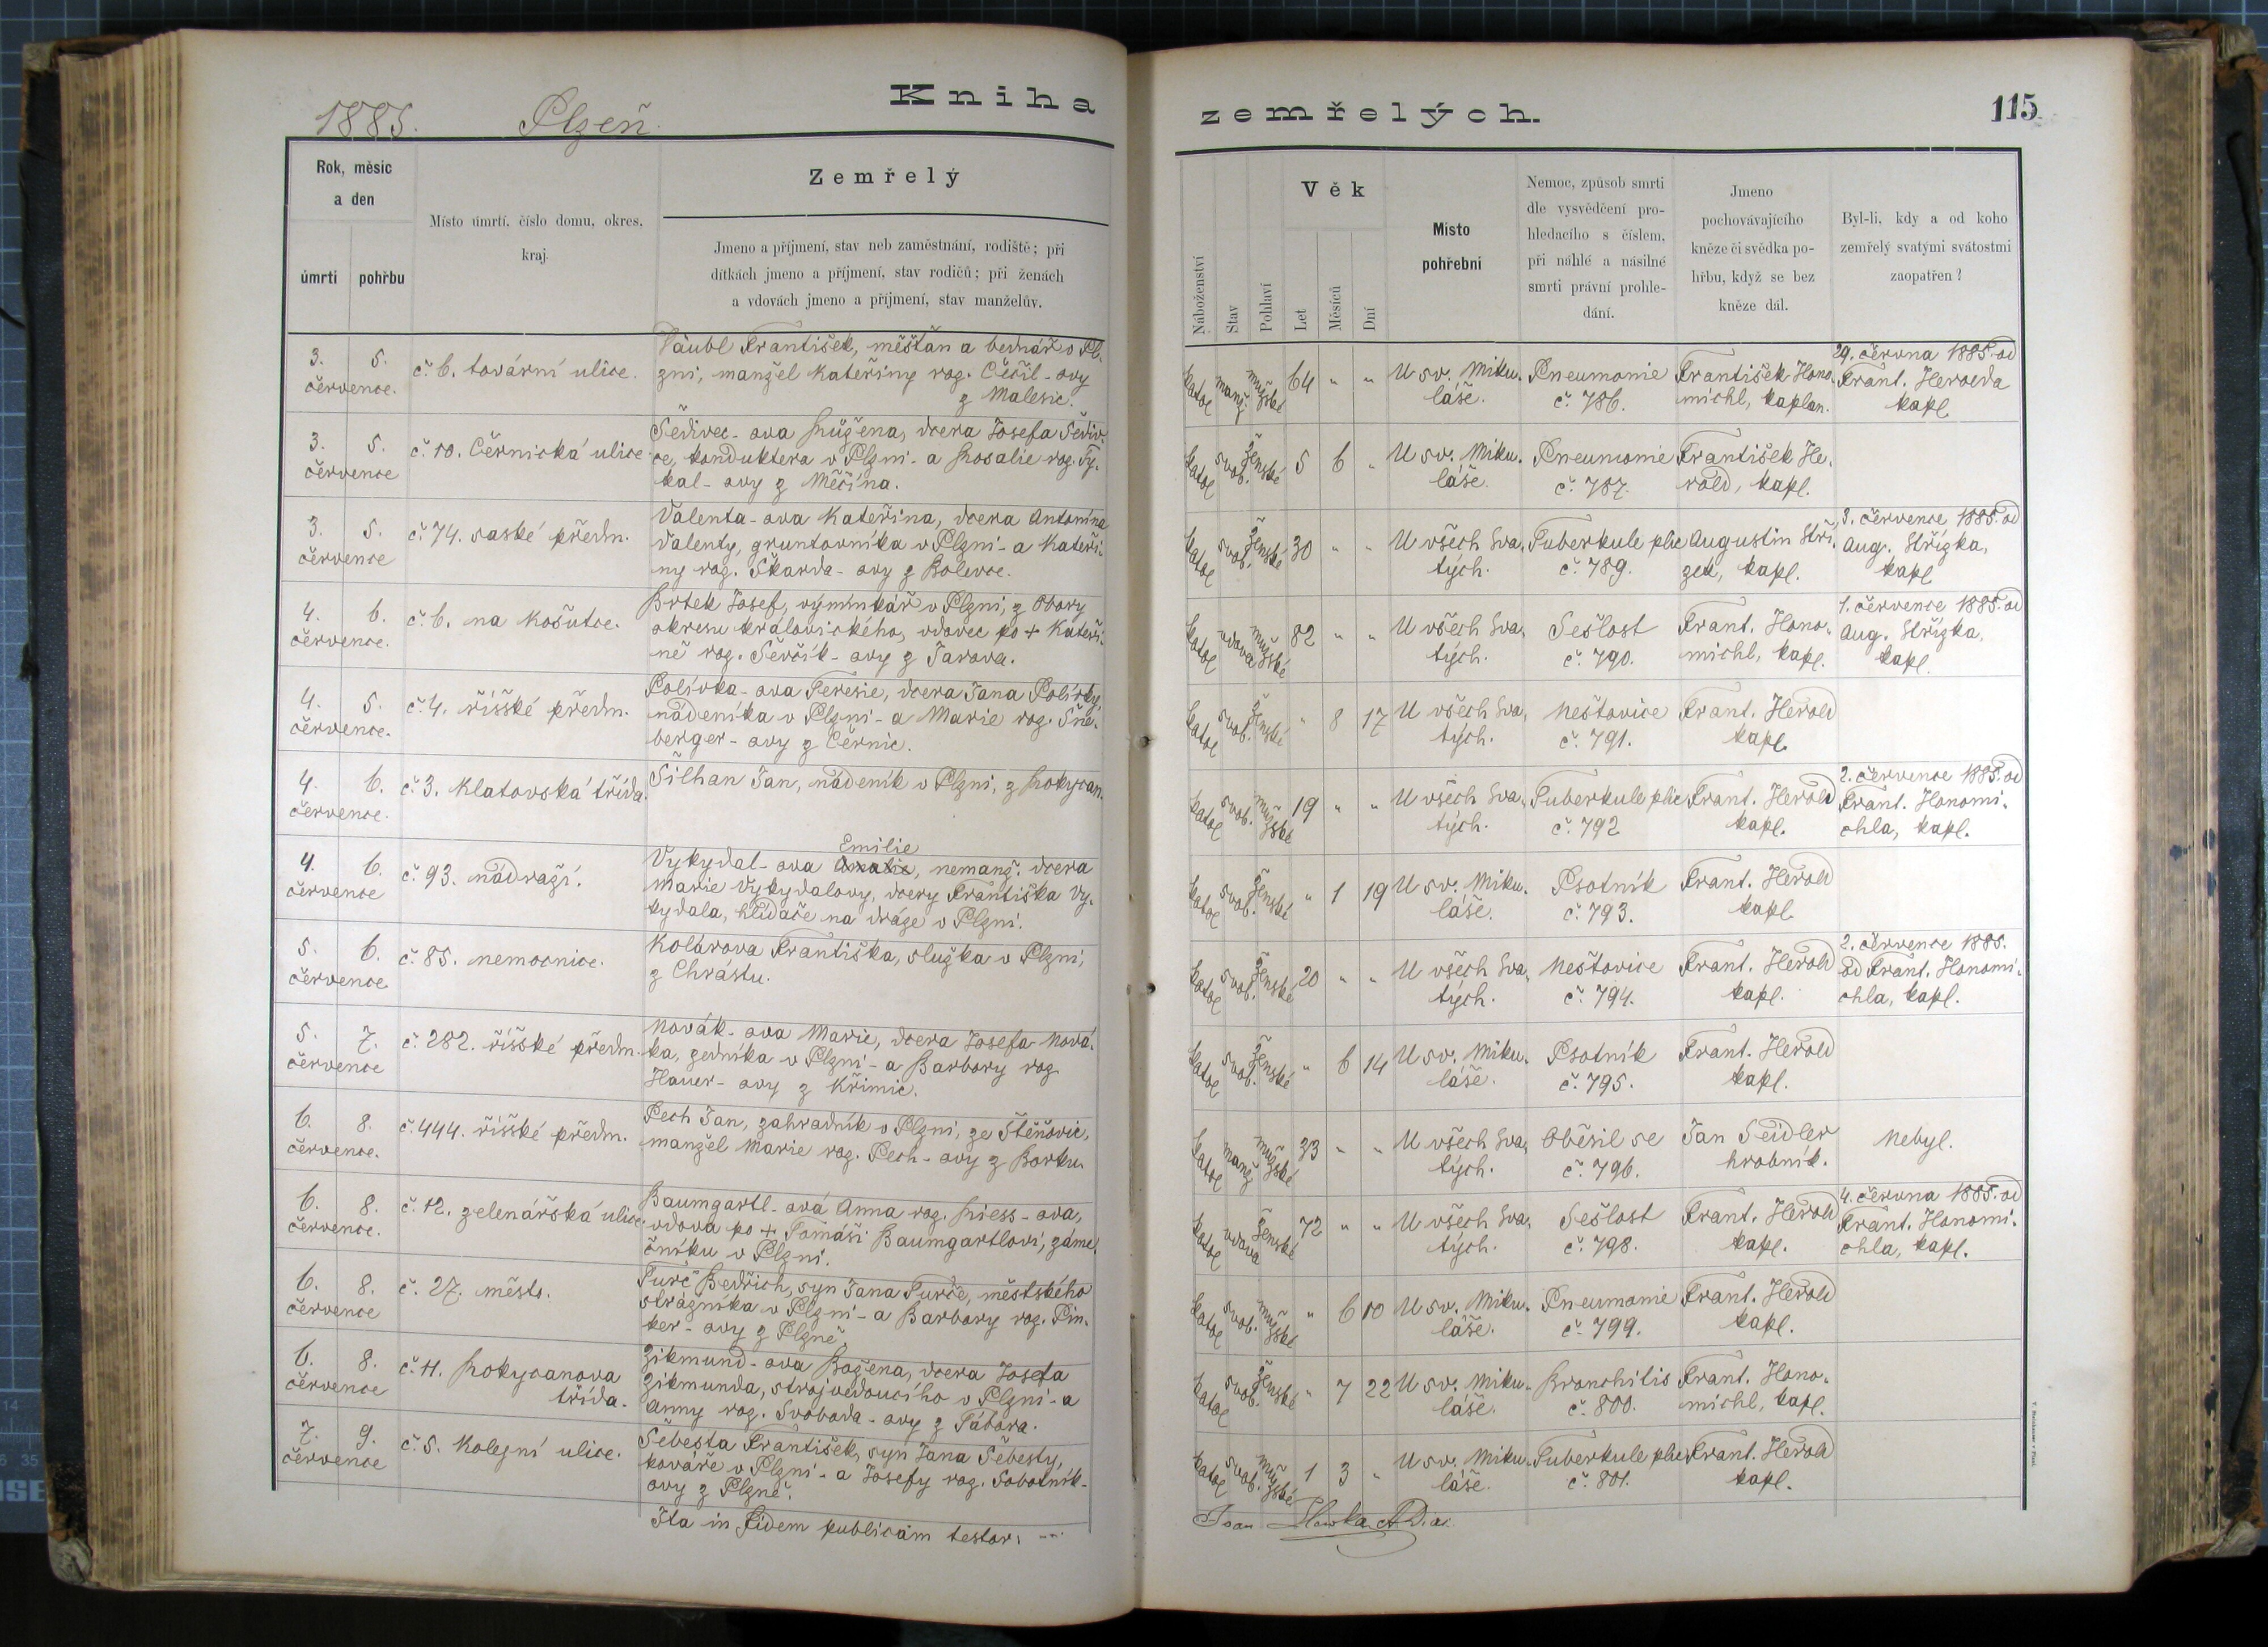 Kniha
1885. Plzeň.
Rok, měsíc
a den
úmrtí
pohřbu
Místo úmrtí, číslo domu, okres,
kraj.
Zemřelý
Jmeno a příjmení, stav neb zaměstnání, rodiště; při
dítkách jmeno a příjmení, stav rodičů; při ženách
a vdovách jmeno a příjmení, stav manželův.
3. 5.
července.
č. 6. tovární ulice.
František, měšťan a bednář v Pl.
zni, manžel Kateřiny roz. ovy
z Malesic.
3. 5.
července
č. 10. Černická ulice
Šedivec-ova Růžena, dcera Josefa Šediv-
ce, konduktera v Plzni - a Rosalie roz. Ty.
kal-ovy z Měčína.
3. 5.
července
č. 74. saské předm.
Valenta-ova Kateřina, dcera Antonína
Valenty, gruntovníka v Plzni - a Kateři.
ny roz. Škarda-ovy z Bolevce.
4. 6.
července.
č. 6. na Košutce.
Brtek Josef, výminkář v Plzni, z Obory
okresu královického, vdovec po + Kateři.
ně roz. Ševčík-ovy z Jarova.
4. 5.
července.
č. 4. říšské předm.
Polívka-ova Teresie, dcera Jana Polívky,
nádeníka v Plzni - a Marie roz. Šne.
berger-ovy z Černic.
4. 6.
července.
č. 3. Klatovská třída.
Šilhan Jan, nádeník v Plzni, z Rokycan.
4. 6.
července
č. 93. nádraží.
Emilie
Vykydal-ova , nemanž. dcera
Marie Vykydalovy, dcery Františka Vy.
kydala, hlídače na dráze v Plzni.
5. 6.
července
č. 85. nemocnice.
Kolárova Františka, služka v Plzni,
z Chrástu.
5. 7.
července
č. 282. říšské předm.
Novák-ova Marie, dcera Josefa Nová.
ka, zedníka v Plzni - a Barbory roz
Hauer-ovy z Křimic.
6. 8.
července.
č. 444. říšské předm.
Pech Jan, zahradník v Plzni, ze Štěňovic,
manžel Marie roz. Pech-ovy z Borku.
6. 8.
července.
č. 12. zelenářská ulice.
Baumgartl-ová Anna roz. Riess-ova,
vdova po + Tomáši Baumgartlovi, záme.
čníku v Plzni.
6. 8.
července
č. 27. město.
Turč Bedřich, syn Jana Turče, městského
strážníka v Plzni - a Barbory roz. Pin.
ker-ovy z Plzně.
6. 8.
července
č. 11. Rokycanova
třída.
Zikmund-ova Božena, dcera Josefa
Zikmunda, strojvedoucího v Plzni - a
Anny roz. Svoboda-ovy z Tábora.
7. 9.
července
č. 5. Kolejní ulice.
Šebesta František, syn Jana Šebesty,
kováře v Plzni - a Josefy roz. Sobotník-
ovy z Plzně.
Ita in fidem publicam testor:
zemřelých.
115
Náboženství
Stav
Pohlaví
Věk
Let
Měsíců
Dní
Místo
pohřební
Nemoc, způsob smrti
dle vysvědčení pro-
hledacího s číslem,
při náhlé a násilné
smrti právní prohle-
dání.
Jmeno
pochovávajícího
kněze či svědka po-
hřbu, když se bez
kněze dál.
Byl-li, kdy a od koho
zemřelý svatými svátostmi
zaopatřen?
katol manž. mužské 64 " "
U sv. Miku.
láše.
Pneumonie
č. 786.
František Hono.
michl, kaplan.
29. června 1885. od
Frant. Herolda
kapl
katol svob. ženské 5 6 "
U sv. Miku.
láše.
Pneumonie
č. 787.
František He.
rold, kapl.
katol svob. ženské 30 " "
U všech Sva.
tých.
Tuberkule plic
č. 789.
Augustin Stří.
zek, kapl.
3. července 1885. od
Aug. Střízka,
kapl
katol vdovec mužské 82 " "
U všech Sva.
tých.
Sešlost
č. 790.
Frant. Hono.
michl, kapl.
1. července 1885. od
Aug. Střízka,
kapl.
katol svob. ženské " 8 17
U všech Sva.
tých.
Neštovice
č. 791.
Frant. Herold
kapl.
katol svob. mužské 19 " "
U všech Sva.
tých.
Tuberkule plic
č. 792
Frant. Herold
kapl.
2. července 1885. od
Frant. Honomi.
chla, kapl.
katol svob. ženské " 1 19
U sv. Miku.
láše.
Psotník
č. 793.
Frant. Herold
kapl.
katol svob. ženské 20 " "
U všech Sva.
tých.
Neštovice
č. 794.
Frant. Herold
kapl.
2. července 1885.
od Frant. Honomi.
chla, kapl.
katol svob. ženské " 6 14
U sv. Miku.
láše.
Psotník
č. 795.
Frant. Herold
kapl.
katol manž mužské 33 " "
U všech Sva.
tých.
Oběsil se
č. 796.
Jan Seidler
hrobník.
Nebyl.
katol vdova ženské 72 " "
U všech Sva.
tých.
Sešlost
č. 798.
Frant. Herold
kapl.
4. června 1885. od
Frant. Honomi.
chla, kapl.
katol svob. mužské " 6 10
U sv. Miku.
láše.
Pneumonie
č. 799.
Frant. Herold
kapl.
katol svob. ženské " 7 22
U sv. Miku.
láše.
Bronchitis
č. 800.
Frant. Hono.
michl, kapl.
katol svob. mužské 1 3 "
U sv. Miku.
láše.
Tuberkule plic
č. 801.
Frant. Herold
kapl.